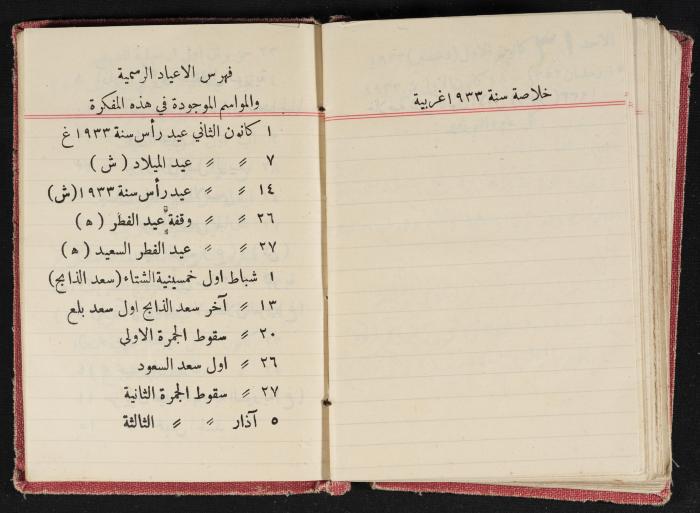 خلاصة سنة ١٩٣٣ غربية
فهرس الاعياد الرسمية
والمواسم الموجودة في هذه المفكرة
١ كانون الثاني عيد رأس سنة ١٩٣٣ غ
٧ 〃 〃 عيد الميلاد ( ش )
١٤ 〃 〃 عيد رأس سنة ١٩٣٣ (ش)
٢٦ 〃 〃 وقفة عيد الفطر ( ه )
٢٧ 〃 〃 عيد الفطر السعيد ( ه )
١ شباط اول خمسينية الشتاء (سعد الذابح)
١٣ 〃 آخر سعد الذابح اول سعد بلع
٢٠ 〃 سقوط الجمرة الاولى
٢٦ 〃 اول سعد السعود
٢٧ 〃 سقوط الجمرة الثانية
٥ آذار 〃 〃 الثالثة